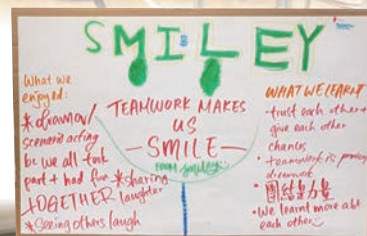 SMILEY
What we
enjoyed:
* drama/
scenario acting
bc we all took
part + had fun * sharing
TOGETHER laughter
* Seeing others laugh
TEAMWORK MAKES
US
— SMILE —
FROM smiley
WHAT WE LEARNT
• trust each other +
give each other
chances
• teamwork is
• 團結是力量
• We learnt more abt
each other